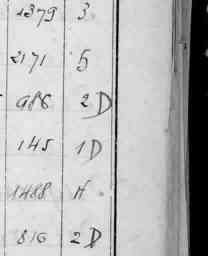 1379 3
2171 5
986 2D
145 1D
1488 H
816 2D